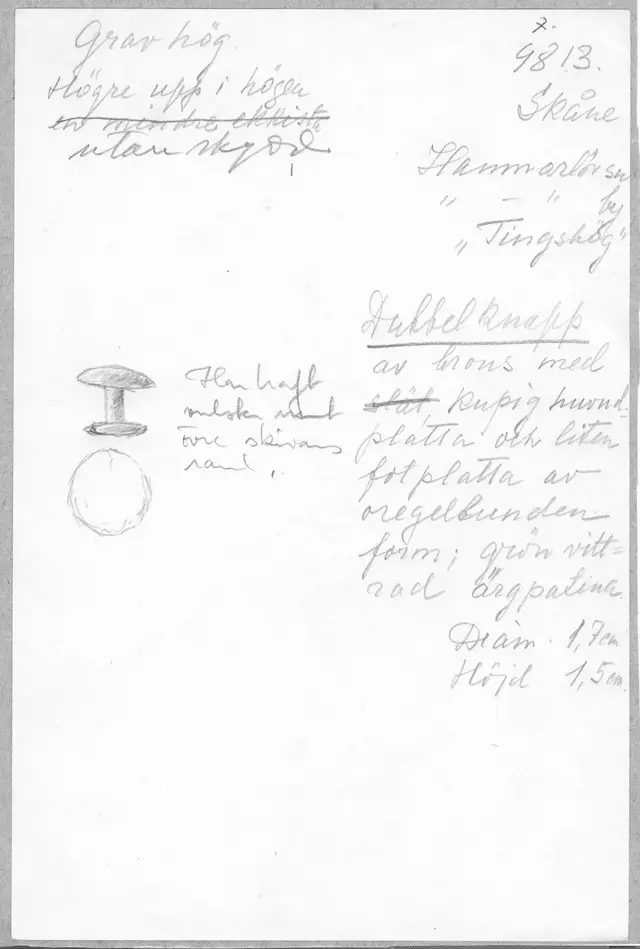 Grav hög.
Högre upp i högen
en mindre ekkista
utan skydd
7.
9813.
Skåne
Hammarlövsn
" — " by
"Tingshög"
Dubbelknapp
av brons med
slät, kupig huvud-
platta och liten
fotplatta av
oregelbunden
form; grön vitt=
rad ärgpatina.
Diam. 1,7 cm
Höjd 1,5 cm.
Har haft
runt
övre skivans
rand.